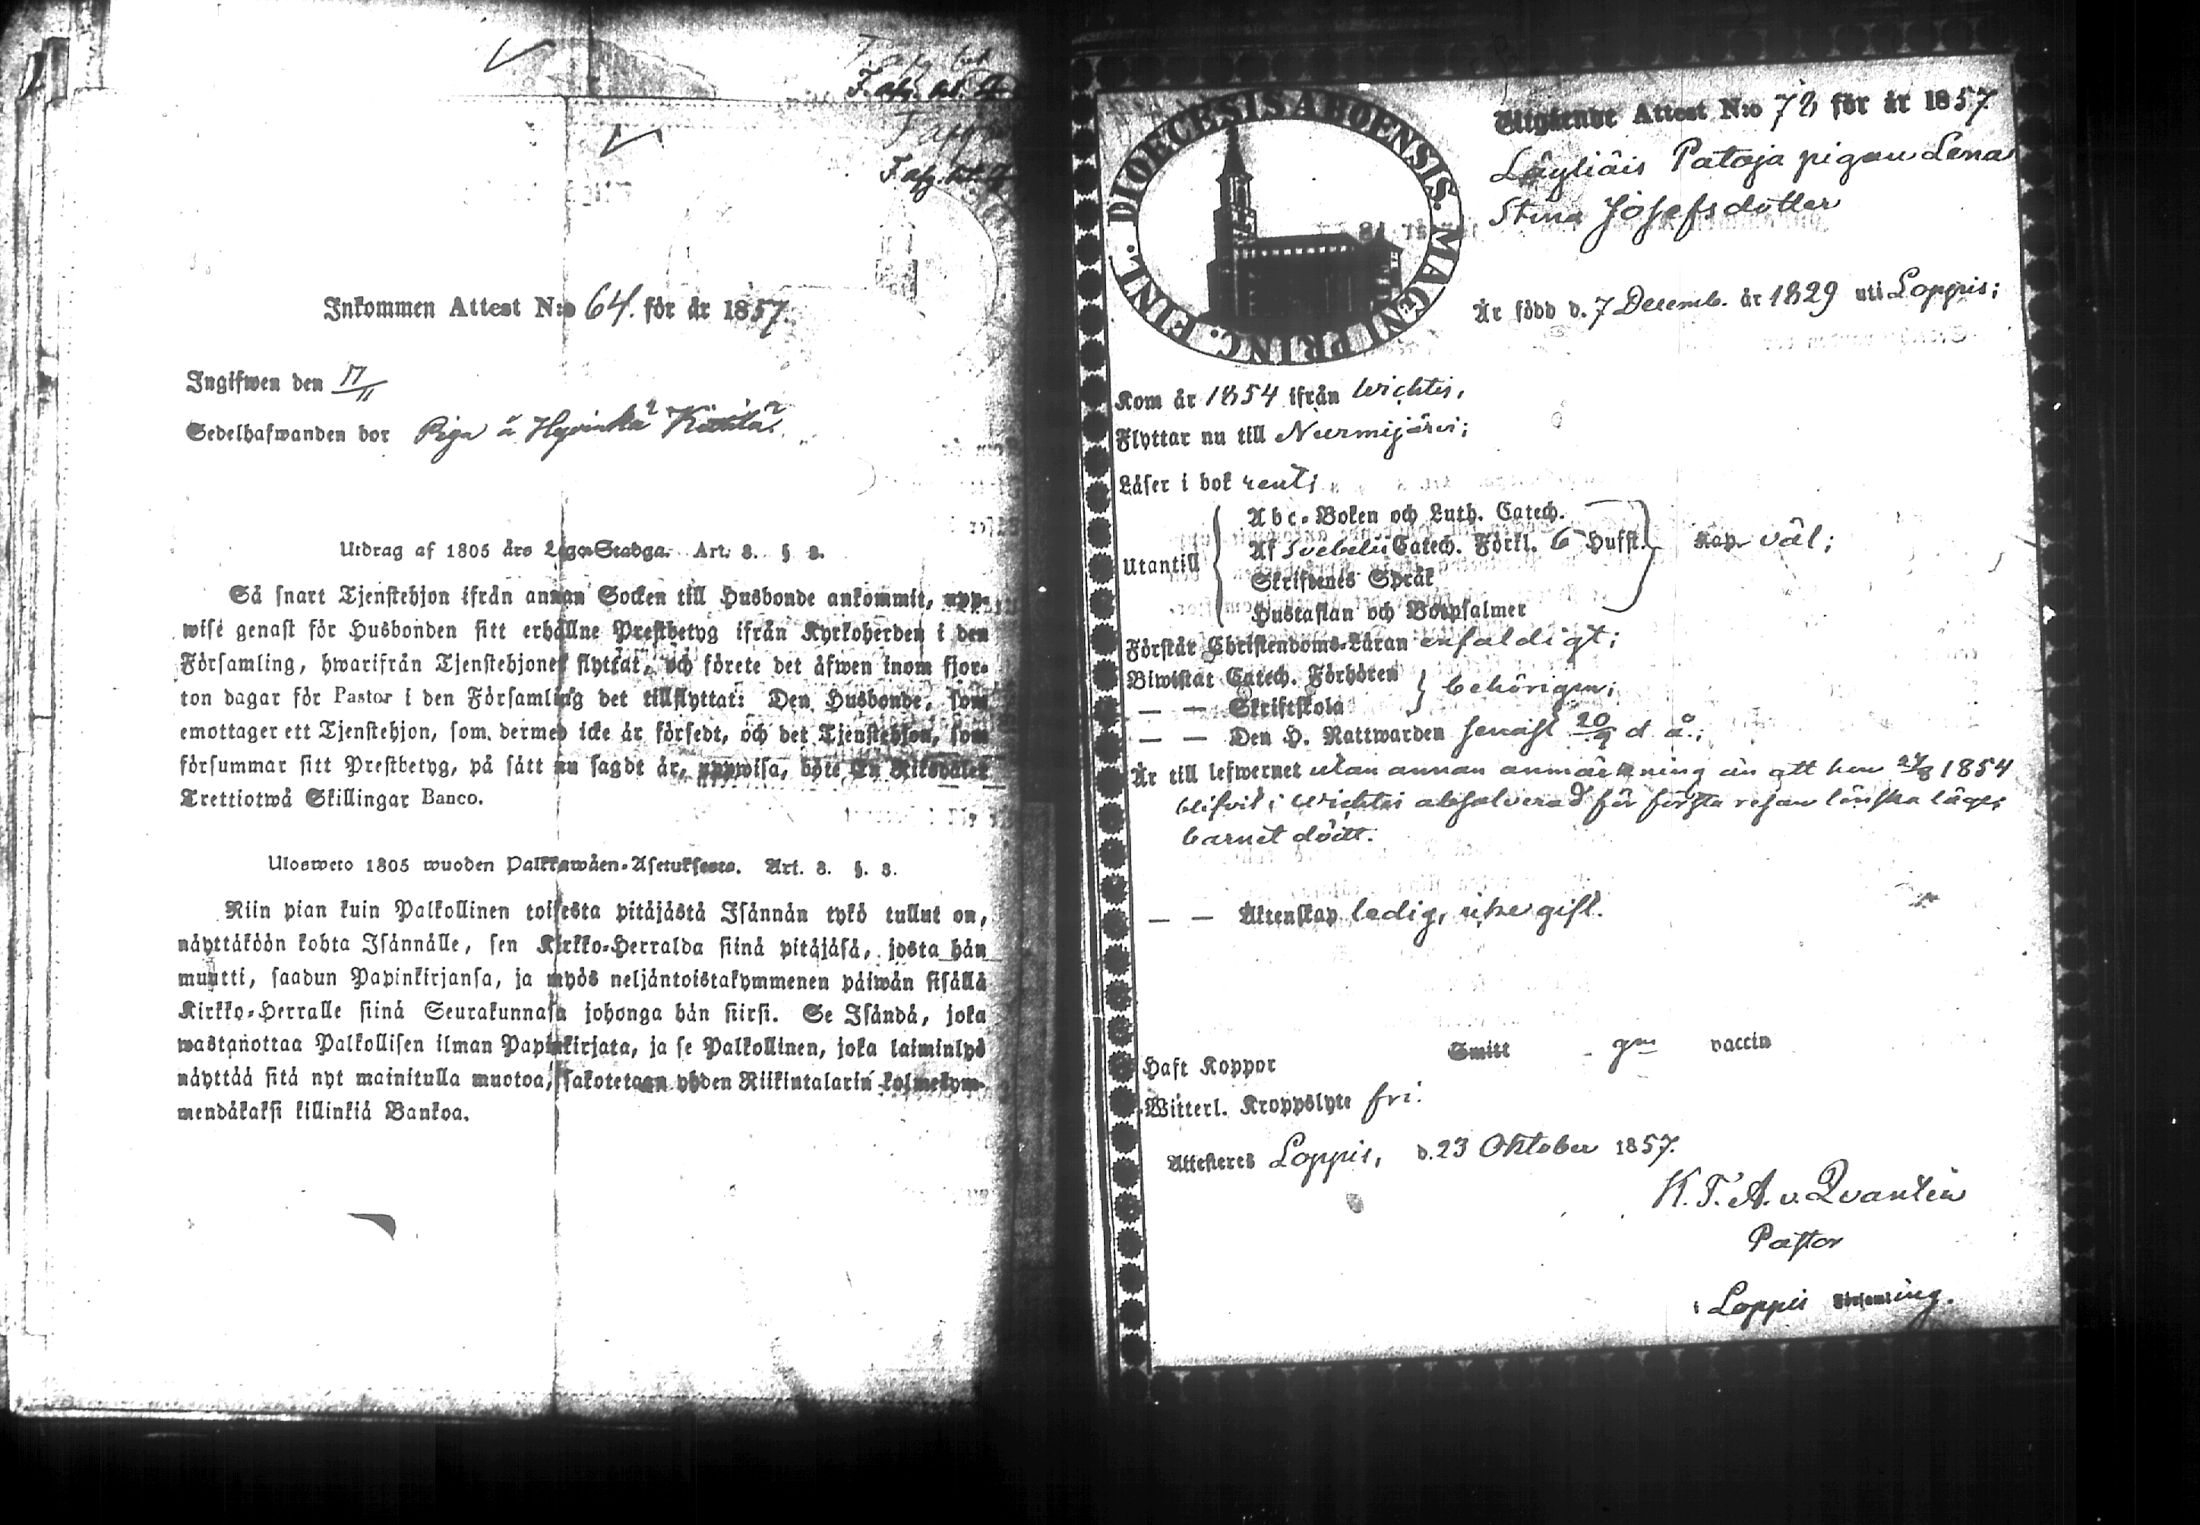 F. afg. bet. g.
F. afg. bet. g.
Inkommen Attest N:o 64. för år 1857.
Ingifwen den 17/11
Sedelhafwanden bor Piga å Hyvinkä
Utdrag af 1805 års Lego-Stadga. Art. 3. § 3.
Så snart Tjenstehjon ifrån annan Socken till Husbonde ankommit, upp-
wise genast för Husbonden sitt erhållne Prestbetyg ifrån Kyrkoherden i den
Församling, hwarifrån Tjenstehjonet flyttat, och förete det äfwen inom fjor-
ton dagar för Pastor i den Församling det tillflyttat: Den Husbonde, som
emottager ett Tjenstehjon, som dermed icke är försedt, och det Tjenstehjon, som
försummar sitt Prestbetyg, på sätt nu sagdt är, uppwisa, böte En Riksdaler
Trettiotwå Skillingar Banco.
Ulosweto 1805 wuoden Palkkawäen-Asetuksesta. Art. 3. §. 3.
Niin pian kuin Palkollinen toisesta pitäjästä Isännän tykö tullut on,
näyttäköön kohta Isännälle, sen Kirkko-Herralda siinä pitäjäsä, josta hän
muutti, saadun Papinkirjansa, ja myös neljäntoistakymmenen päiwän sisällä
Kirkko-Herralle siinä Seurakunnasa johonga hän siirsi. Se Isändä, joka
wastanottaa Palkollisen ilman Papinkirjata, ja se Palkollinen, joka laiminlyö
näyttää sitä nyt mainitulla muotoa, sakotetaan yhden Riikintalarin kolmekym-
mendäkaksi killinkiä Bankoa.
DIOECESIS ABOENSIS. MAGNI PRINC. FINL.
Utgående Attest N:o 78 för år 1857
Läyliäis Pataja pigan Lena
Stina Josefsdotter
Är född d. 7 Decemb. år 1829 uti Loppis;
Kom år 1854 ifrån Wichtis,
Flyttar nu till Nurmijärvi;
Läser i bok rent;
Utantill
Abc-Boken och Luth. Catech.
Af Svebelii Catech. Förkl. 6 Hufst. väl;
Skriftenes Språk
Hustaflan och Botpsalmer
Förstår Christendoms-Läran enfaldigt;
Biwistat Catech. Förhören
— — Skriftskola behörigen;
— — Den H. Nattwarden senast 20/9 d. å.;
Är till lefwernet utan annan anmärkning än att hon 27/8 1854
blifvit i Wichtis absolverad för första resan lönska läge;
barnet dödt.
— — Äktenskap ledig, icke gift.
Haft Koppor Smitt gm vaccin
Witterl. Kroppslyte fri.
Attesteres Loppis, d. 23 Oktober 1857.
K. T. A. v. Qvanten
Pastor
i Loppis Församling.